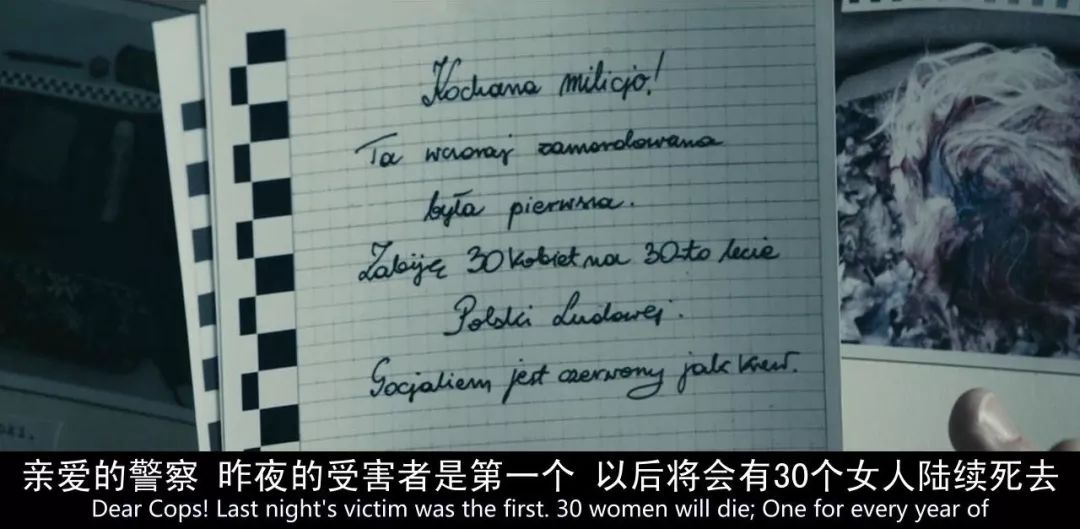 Kochana milicjo!
Ta wczoraj zamordowana
była pierwsza.
Zabiję 30 kobiet na 30-to lecie
Polski Ludowej.
Socjalizm jest czerwony jak krew.
亲爱的警察 昨夜的受害者是第一个 以后将会有30个女人陆续死去
Dear Cops! Last night's victim was the first. 30 women will die; One for every year of